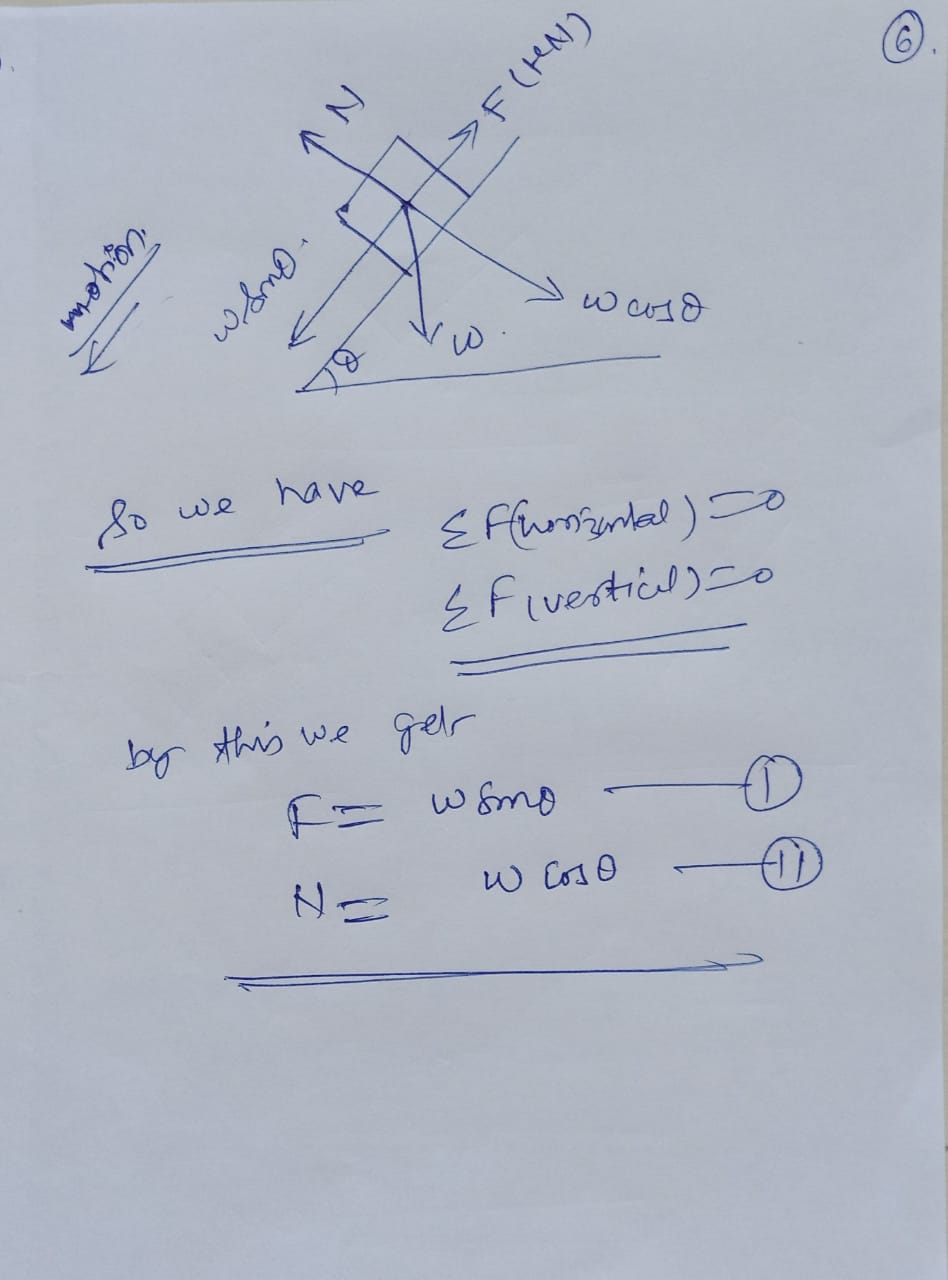 6.
N
F (μN)
motion.
w sinθ.
w cosθ
θ
w.
So we have
Σ F(horizontal) = 0
Σ F(vertical) = 0
by this we get
F = w sinθ — I
N = w cosθ — II